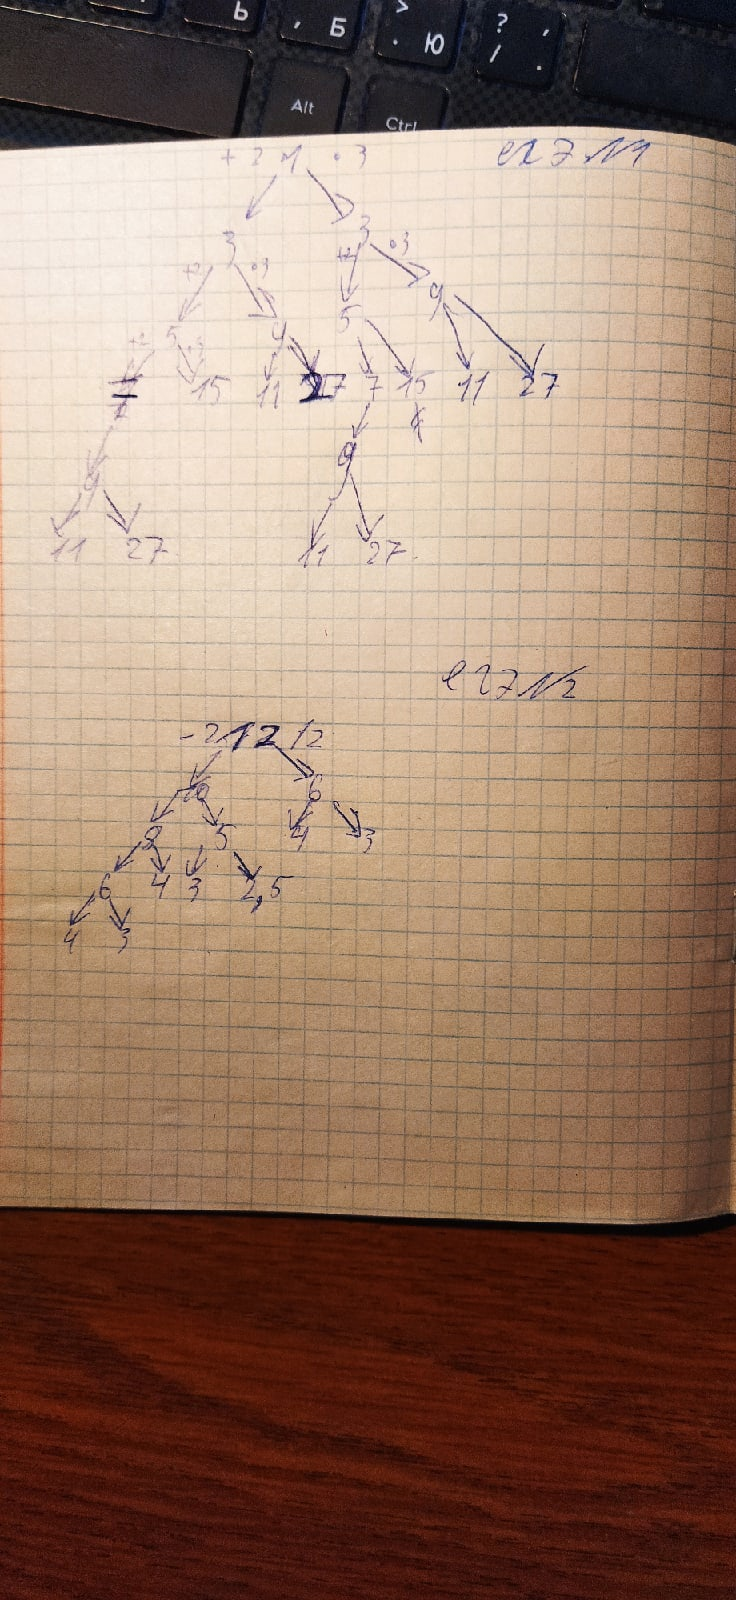 Ь , Б > . Ю ? / , .
Alt Ctrl
+2 1 · 3
3 3
+2 ·3 +2 ·3
5 9 5 9
15 11 27 7 15 11 27
9 9
11 27 11 27
-2 12 /2
10 6
8 5 4 3
6 4 3 2,5
4 3